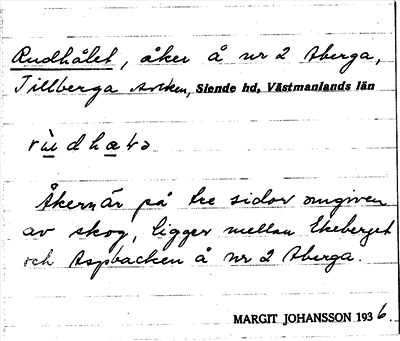 Rudhålet, åker å nr 2 Åberga,
Tillberga socken, Siende hd, Västmanlands län
Åkern är på tre sidor omgiven
av skog, ligger mellan Ekeberget
och Aspbacken å nr 2 Åberga.
MARGIT JOHANSSON 1936.